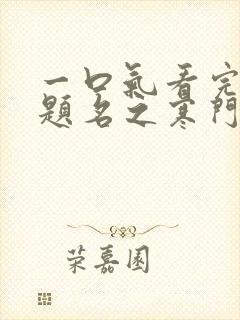 一口氣看完
題名之寒門
荣嘉園